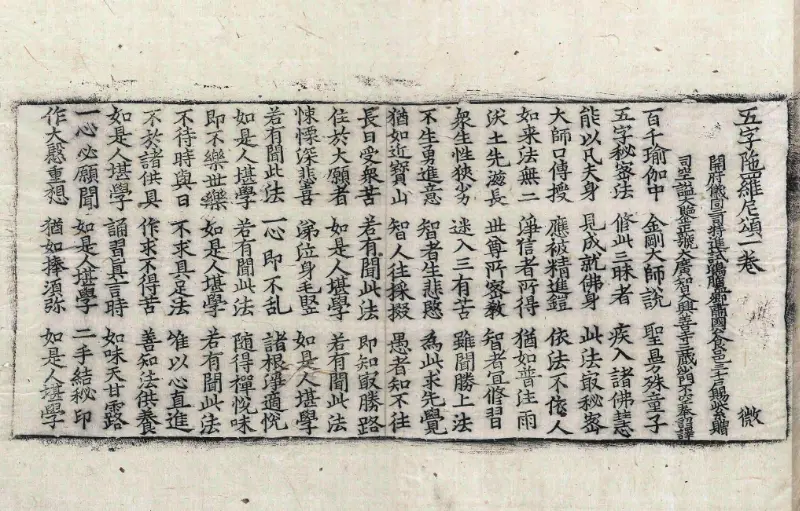 五字陁羅尼頌一卷　微
開府儀同三司特進試鴻臚卿肅國公食邑三千戶賜紫贈
司空謚大鑒正號大廣智大興善寺三藏沙門不空奉詔譯
百千瑜伽中　金剛大師說　聖曼殊童子
五字秘密法　修此三昧者　疾入諸佛慧
能以凡夫身　見成就佛身　此法㝡秘密
大師口傳授　應被精進鎧　依法不依人
如来法無二　淨信者所得　猶如普注雨
沃土先滋長　世尊所密教　智者宜修習
衆生性狹劣　迷入三有苦　雖聞勝上法
不生勇進意　智者生悲愍　為此求先覺
猶如近寶山　智人往採掇　愚者知不往
長日受衆苦　若有聞此法　即知㝡勝路
住於大願者　如是人堪學　若有聞此法
悚慄深悲喜　涕泣身毛竪　如是人堪學
若有聞此法　一心即不乱　諸根淨適悅
如是人堪學　若有聞此法　隨得禪悅味
即不樂世樂　如是人堪學　若有聞此法
不待時與日　不求具足法　惟以心直進
不於諸供具　作求不得苦　善知法供養
如是人堪學　誦習真言時　如味天甘露
一心必願聞　如是人堪學　二手結秘印
作大慇重想　猶如捧須弥　如是人堪學